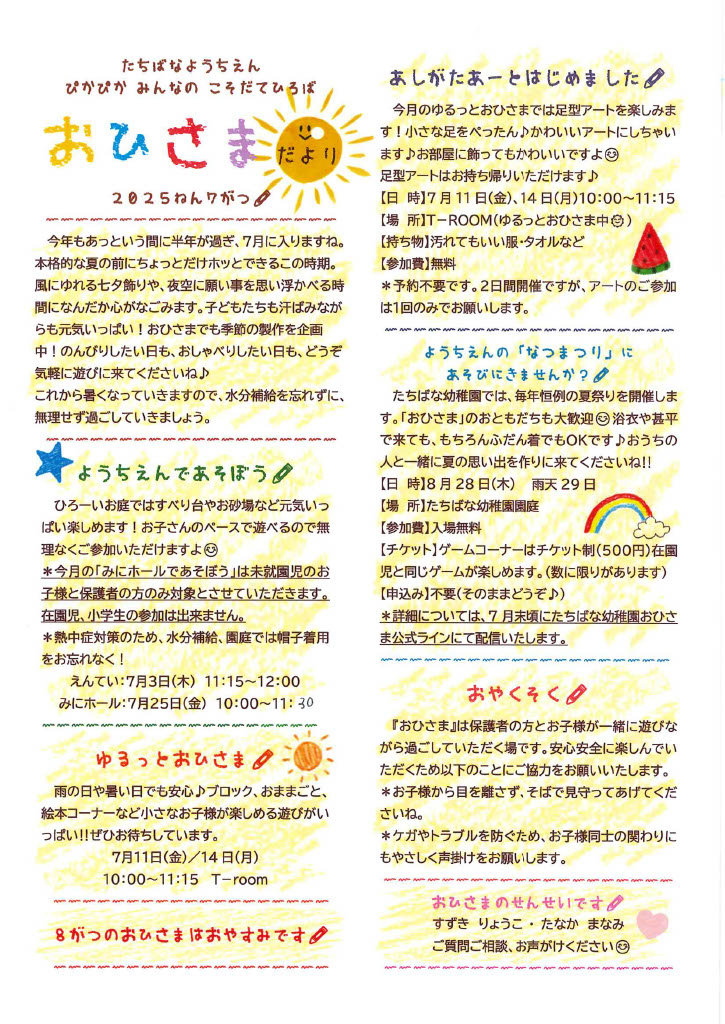 たちばなようちえん
ぴかぴか みんなの こそだてひろば
おひさま
だより
2025ねん7がつ
今年もあっという間に半年が過ぎ、7月に入りますね。
本格的な夏の前にちょっとだけホッとできるこの時期。
風にゆれる七夕飾りや、夜空に願い事を思い浮かべる時
間になんだか心がなごみます。子どもたちも汗ばみなが
らも元気いっぱい！おひさまでも季節の製作を企画
中！のんびりしたい日も、おしゃべりしたい日も、どうぞ
気軽に遊びに来てくださいね♪
これから暑くなっていきますので、水分補給を忘れずに、
無理せず過ごしていきましょう。
ようちえんであそぼう
ひろーいお庭ではすべり台やお砂場など元気いっ
ぱい楽しめます！お子さんのペースで遊べるので無
理なくご参加いただけますよ😊
＊今月の「みにホールであそぼう」は未就園児のお
子様と保護者の方のみ対象とさせていただきます。
在園児、小学生の参加は出来ません。
＊熱中症対策のため、水分補給、園庭では帽子着用
をお忘れなく！
えんてい:7月3日(木) 11:15～12:00
みにホール:7月25日(金) 10:00～11:30
ゆるっとおひさま
雨の日や暑い日でも安心♪ブロック、おままごと、
絵本コーナーなど小さなお子様が楽しめる遊びがい
っぱい!!ぜひお待ちしています。
7月11日(金)／14日(月)
10:00～11:15 T-room
8がつのおひさまはおやすみです
あしがたあーとはじめました
今月のゆるっとおひさまでは足型アートを楽しみま
す！小さな足をぺったん♪かわいいアートにしちゃい
ます♪お部屋に飾ってもかわいいですよ😊
足型アートはお持ち帰りいただけます♪
【日 時】7月11日(金)、14日(月)10:00～11:15
【場 所】T-ROOM(ゆるっとおひさま中😊)
【持ち物】汚れてもいい服・タオルなど
【参加費】無料
＊予約不要です。2日間開催ですが、アートのご参加
は1回のみでお願いします。
ようちえんの「なつまつり」に
あそびにきませんか？
たちばな幼稚園では、毎年恒例の夏祭りを開催しま
す。「おひさま」のおともだちも大歓迎😊浴衣や甚平
で来ても、もちろんふだん着でもOKです♪おうちの
人と一緒に夏の思い出を作りに来てくださいね!!
【日 時】8月28日(木) 雨天29日
【場 所】たちばな幼稚園園庭
【参加費】入場無料
【チケット】ゲームコーナーはチケット制(500円)在園
児と同じゲームが楽しめます。(数に限りがあります)
【申込み】不要(そのままどうぞ♪)
＊詳細については、7月末頃にたちばな幼稚園おひさ
ま公式ラインにて配信いたします。
おやくそく
『おひさま』は保護者の方とお子様が一緒に遊びな
がら過ごしていただく場です。安心安全に楽しんでい
ただくため以下のことにご協力をお願いいたします。
＊お子様から目を離さず、そばで見守ってあげてくだ
さいね。
＊ケガやトラブルを防ぐため、お子様同士の関わりに
もやさしく声掛けをお願いします。
おひさまのせんせいです
すずき りょうこ ・ たなか まなみ
ご質問ご相談、お声がけください😊